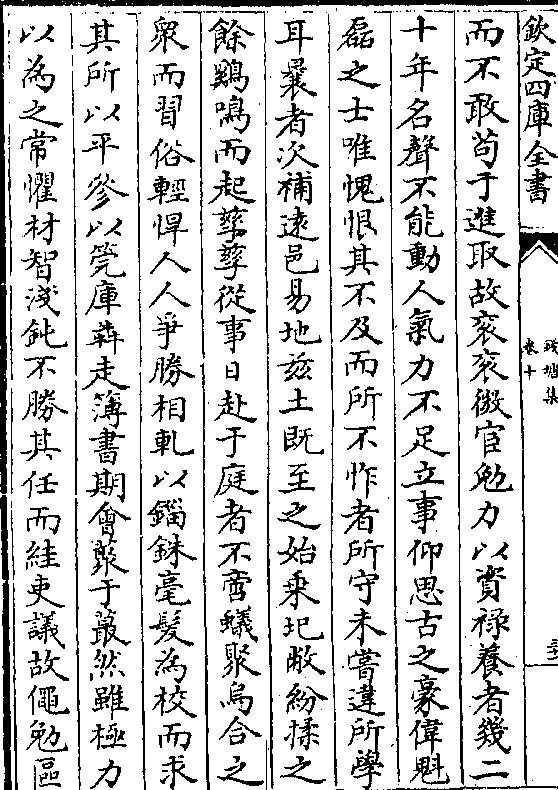 欽定四庫全書
卷十
而不敢苟于進取故衮衮微官勉力以資祿養者幾二
十年名聲不能動人氣力不足立事仰思古之豪偉魁
磊之士唯愧恨其不及而所不怍者所守未嘗違所學
耳曩者次補遠邑易地兹土既至之始乗圯敝紛揉之
餘鷄鳴而起孳孳從事日赴于庭者不啻蟻聚烏合之
衆而習俗輕悍人人爭勝相軋以錙銖毫髮為校而求
其所以平爹以筦庫犇走簿書期會藂于蕞然雖極力
以為之常懼材智淺鈍不勝其任而絓吏議故僶勉區